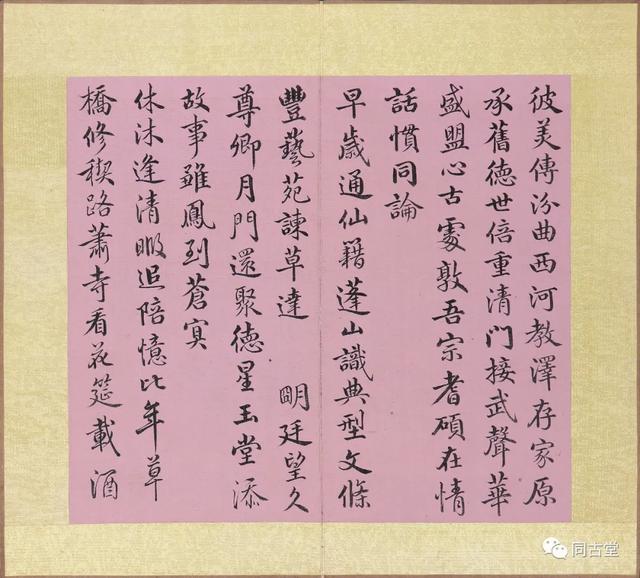 彼美傳汾曲西河教澤存家原
承舊德世倍重清門接武聲華
盛盟心古處敦吾宗耆碩在情
話慣同論
早歲通仙籍蓬山識典型文條
豐藝苑諫草達 明廷望久
尊卿月門還聚德星玉堂添
故事雛鳳到蒼冥
休沐逢清暇追陪憶比年草
橋修稧路蕭寺看花筵載酒
同古堂